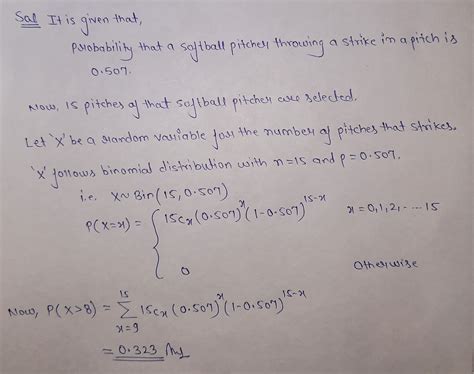 Sol It is given that,
Probability that a softball pitcher throwing a strike in a pitch is
0.507.
Now, 15 pitches of that softball pitcher are selected.
Let 'X' be a random variable for the number of pitches that strikes.
'X' follows binomial distribution with n=15 and p=0.507.
i.e. X~Bin(15, 0.507)
P(X=x) = { 15Cx (0.507)^x (1-0.507)^15-x x=0,1,2,---15
0 Otherwise
Now, P(X>8) = 15 Σ x=9 15Cx (0.507)^x (1-0.507)^15-x
= 0.323 Ans